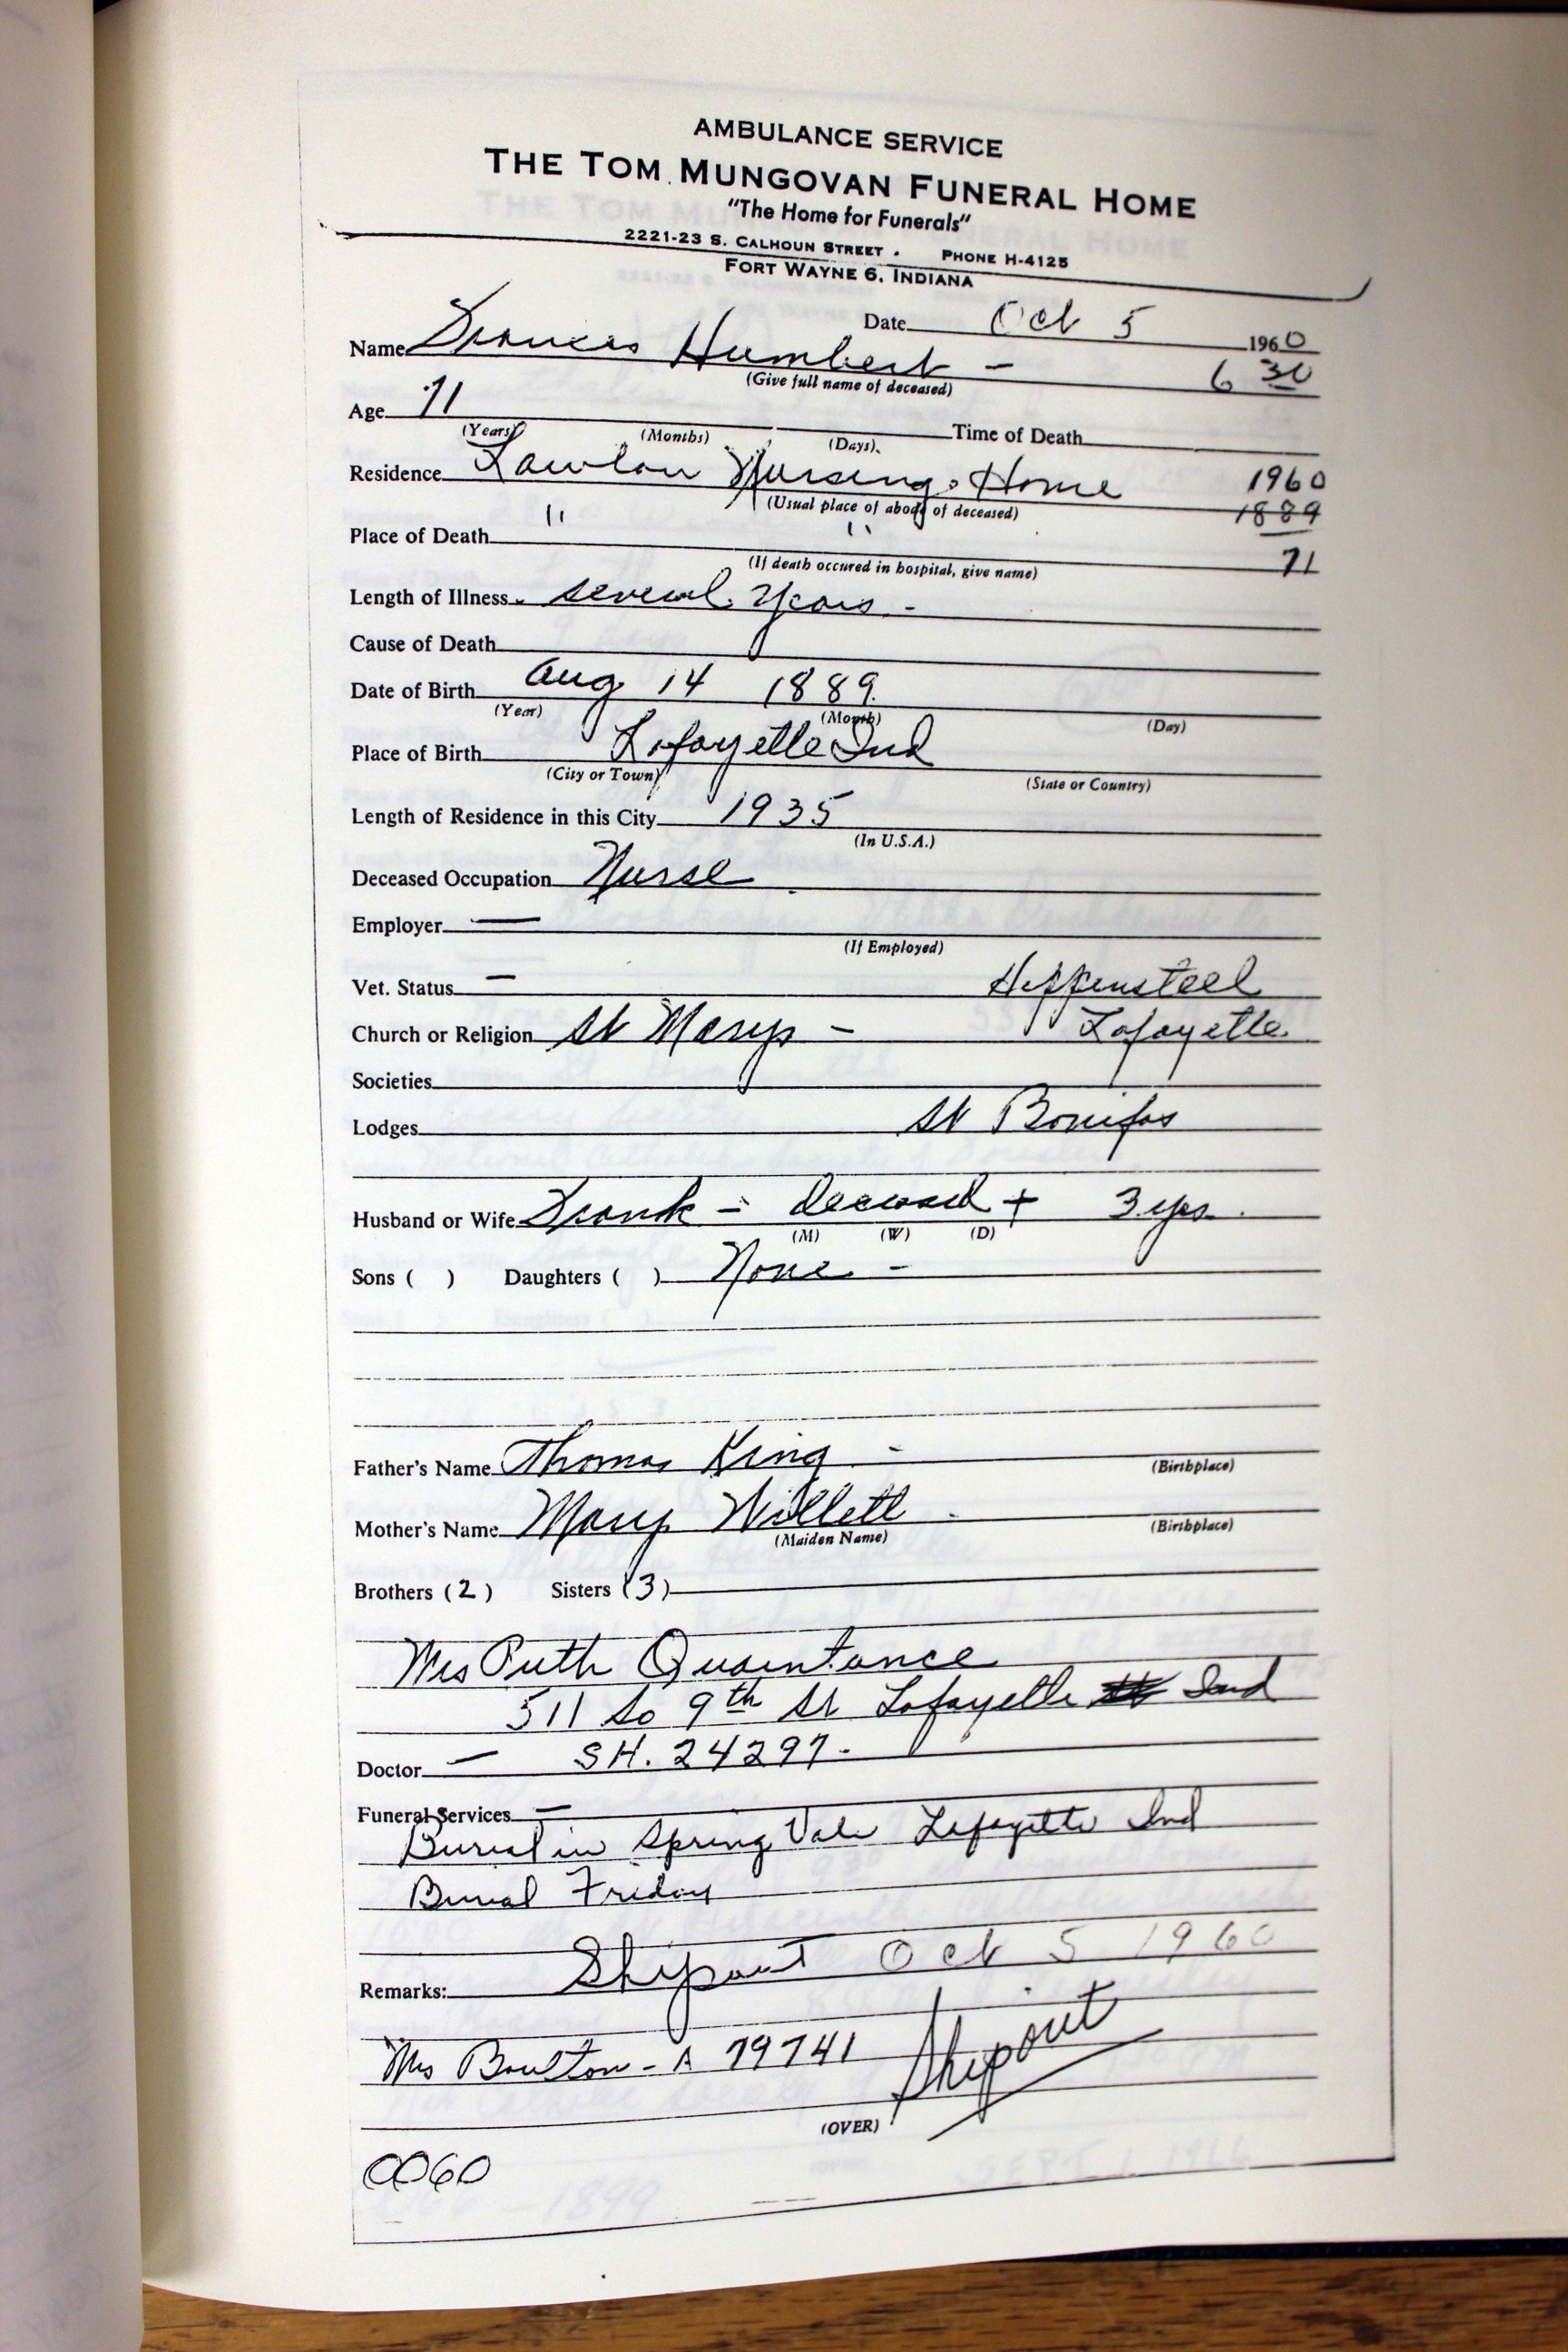 AMBULANCE SERVICE
THE TOM MUNGOVAN FUNERAL HOME
"The Home for Funerals"
2221-23 S. CALHOUN STREET . PHONE H-4125
FORT WAYNE 6, INDIANA
Date Oct 5 1960
Name Frances Humbert - 6 30
(Give full name of deceased)
Age 71 Time of Death
(Years) (Months) (Days)
Residence Lawton Nursing Home 1960
(Usual place of abode of deceased) 1889
Place of Death " " 71
(If death occured in hospital, give name)
Length of Illness several years -
Cause of Death
Date of Birth Aug 14 1889
(Year) (Month) (Day)
Place of Birth Lafayette Ind
(City or Town) (State or Country)
Length of Residence in this City 1935
(In U.S.A.)
Deceased Occupation Nurse
Employer —
(If Employed)
Vet. Status — Hippensteel
Church or Religion St Marys - Lafayette
Societies
Lodges St Bonifas
Husband or Wife Frank - deceased + 3 yrs.
(M) (W) (D)
Sons ( ) Daughters ( ) None -
Father's Name Thomas King - (Birthplace)
Mother's Name Mary Willett - (Birthplace)
(Maiden Name)
Brothers (2) Sisters (3)
Mrs Ruth Quaintance
511 So 9th St Lafayette Ind
Doctor — SH. 24297-
Funeral Services —
Burial in Spring Vale Lafayette Ind
Burial Friday
Remarks: Shipout Oct 5 1960
Mrs Boulton - A 79741 Shipout
(OVER)
0060